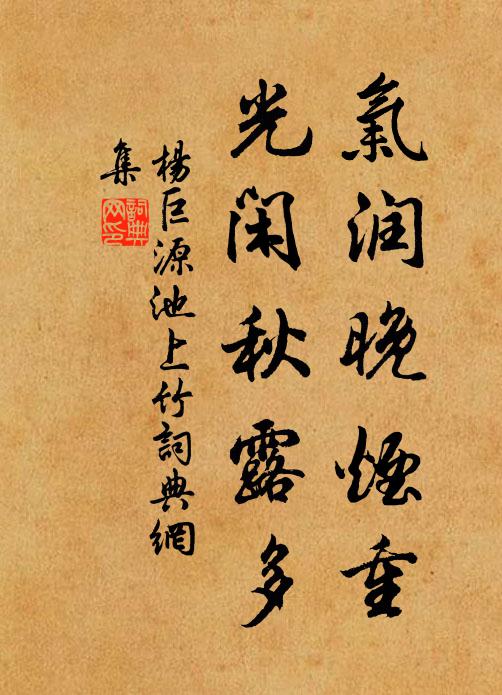 氣润晚煙重
光閑秋露多
楊巨源池上竹詞典網
集
詞典
网印